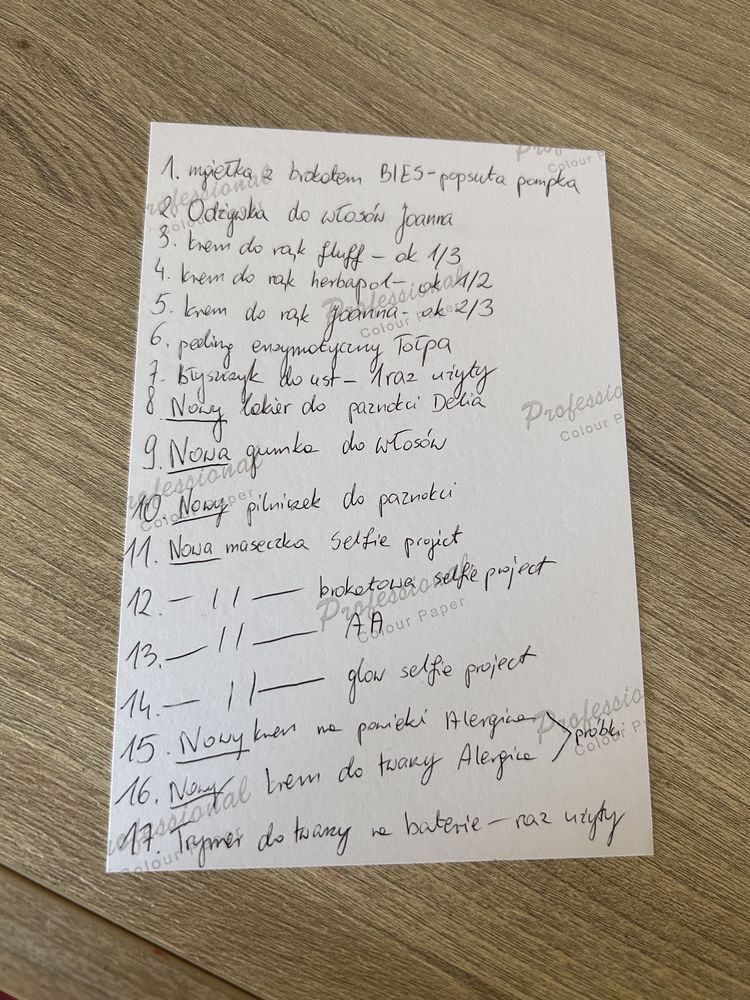 1. mgiełka z brokatem BIES - popsuta pompka
2. Odżywka do włosów Joanna
3. krem do rąk fluff - ok 1/3
4. krem do rąk herbapol - ok 1/2
5. krem do rąk Joanna - ok 2/3
6. peeling enzymatyczny Tołpa
7. Błyszczyk do ust - 1 raz użyty
8 Nowy lakier do paznokci Delia
9. Nowa gumka do włosów
10. Nowy pilniczek do paznokci
11. Nowa maseczka Selfie project
12. — || — brokatowa selfie project
13. — || — AA
14. — || — glow selfie project
15. Nowy krem na powieki Alergica
16. Nowy krem do twarzy Alergica > próbki
17. Trymer do twarzy na baterie - raz użyty
Professional
Colour Paper
Professional
Colour Paper
Professional
Colour Paper